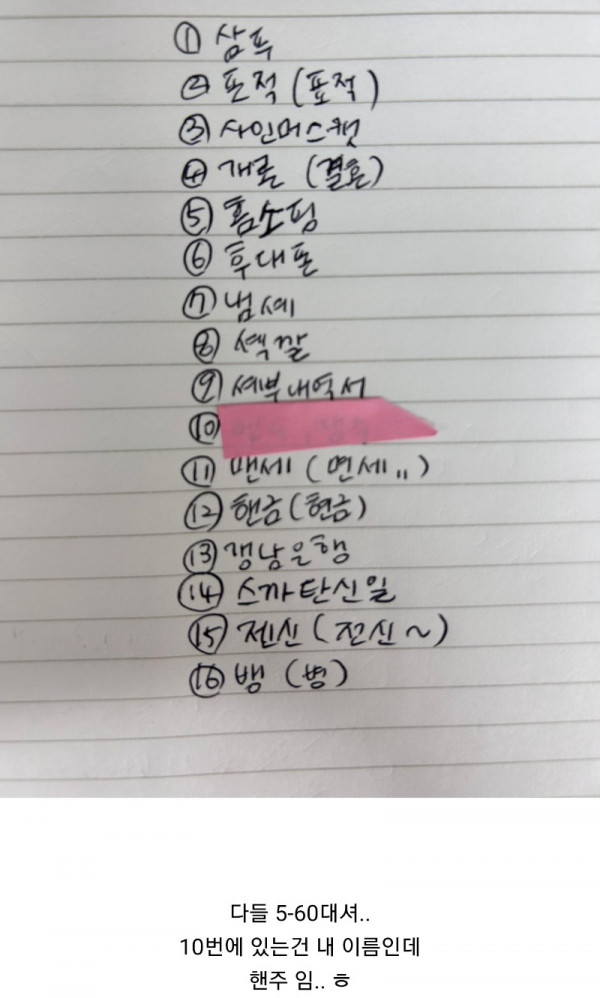 ① 삼푸
② 포적 (표적)
③ 사인머스캣
④ 개론 (결혼)
⑤ 홈소핑
⑥ 후대폰
⑦ 냄세
⑧ 섹깔
⑨ 세부내역서
⑩
⑪ 맨세 (면세,,)
⑫ 핸금 (현금)
⑬ 갱남은행
⑭ 스까탄신일
⑮ 젠신 (전신~)
⑯ 뱅 (병)
다들 5-60대셔..
10번에 있는건 내 이름인데
핸주 임.. ㅎ